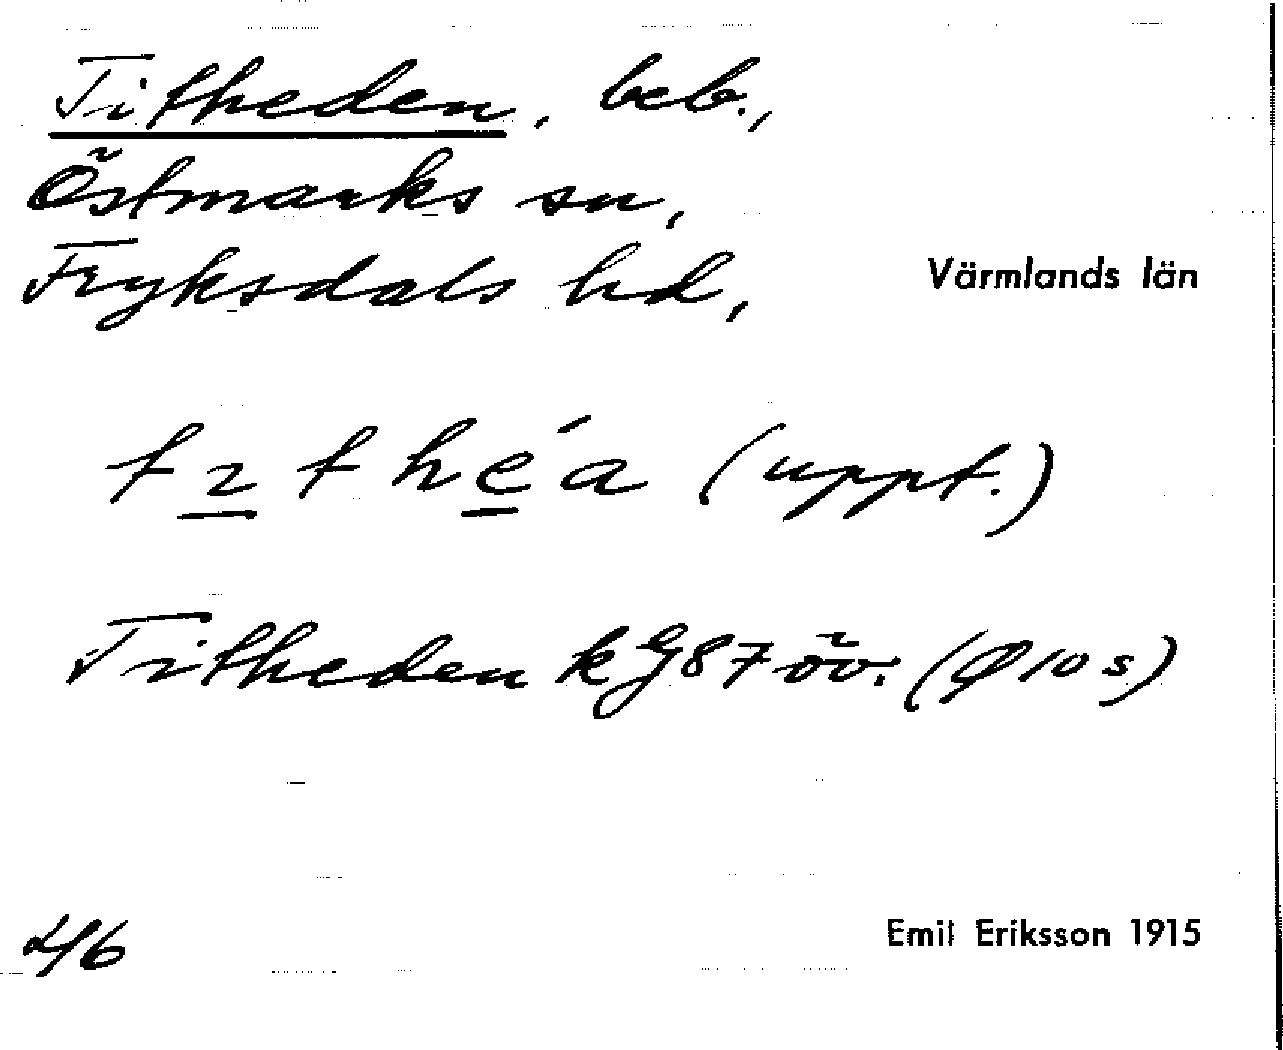 Titheden, beb.,
Östmarks sn,
Fryksdals hd,
Värmlands län
tıthéa (uppt.)
Titheden kG87 öv. (Ø10s)
46
Emil Eriksson 1915